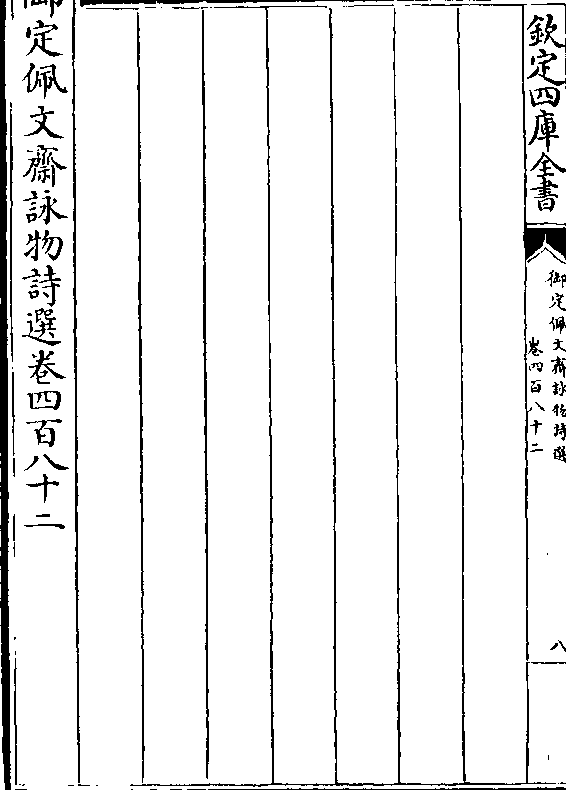 欽定四庫全書
御定佩文齋詠物詩選
卷四百八十二
八
御定佩文齋詠物詩選卷四百八十二